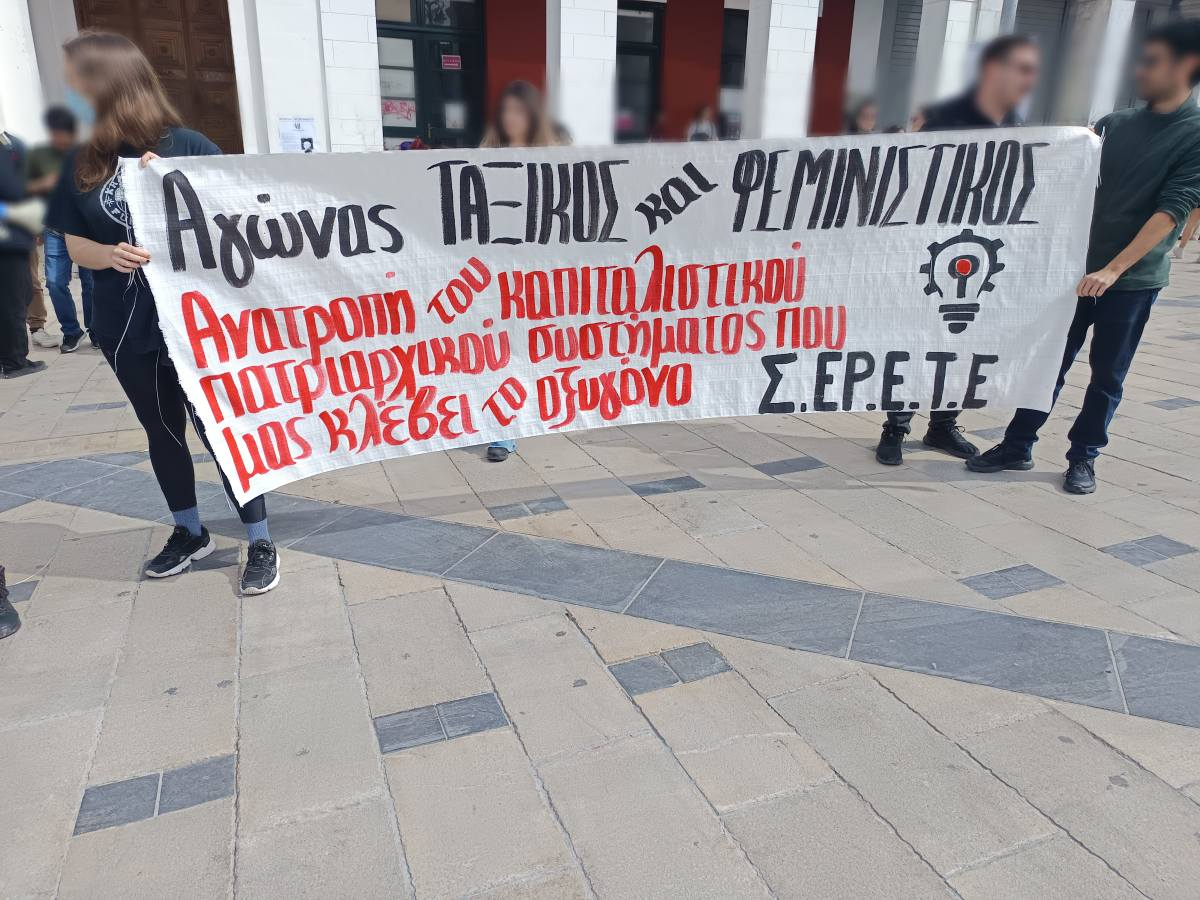 Αγώνας ΤΑΞΙΚΟΣ και ΦΕΜΙΝΙΣΤΙΚΟΣ
Ανατροπή του καπιταλιστικού
πατριαρχικού συστήματος που
μας κλέβει το οξυγόνο
Σ.ΕΡ.Ε.Τ.Ε